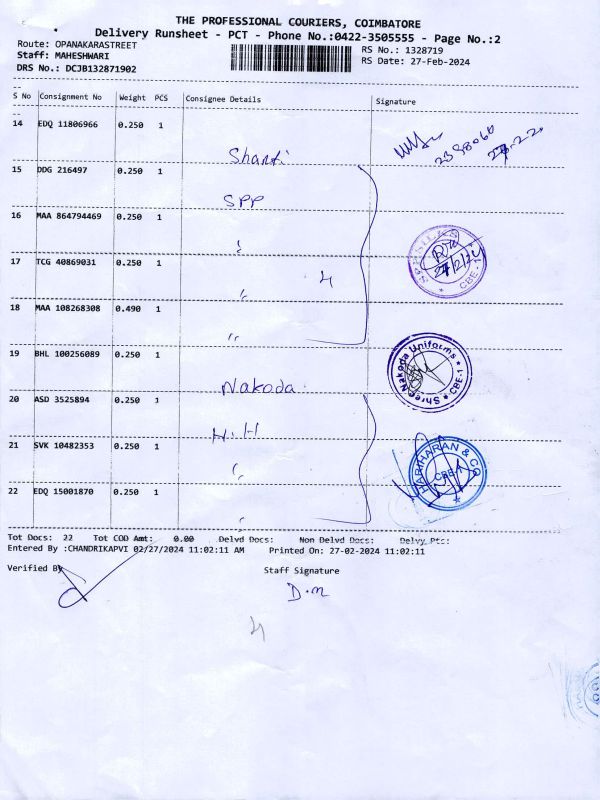 THE PROFESSIONAL COURIERS, COIMBATORE
Delivery Runsheet - PCT - Phone No.:0422-3505555 - Page No.:2
Route: OPANAKARASTREET
RS No.: 1328719
Staff: MAHESHWARI
RS Date: 27-Feb-2024
DRS No.: DCJB132871902
S No Consignment No Weight PCS Consignee Details Signature
14 EDQ 11806966 0.250 1
Shanti
15 DDG 216497 0.250 1
SPP
16 MAA 864794469 0.250 1
17 TCG 40869031 0.250 1
4
18 MAA 108268308 0.490 1
19 BHL 100256089 0.250 1
Nakoda
20 ASD 3525894 0.250 1
H.H
21 SVK 10482353 0.250 1
22 EDQ 15001870 0.250 1
CBE-1
Shree Nakoda Uniforms * CBE-1 *
HARIHARAN & CO
CBE-1
Tot Docs: 22 Tot COD Amt: 0.00 Delvd Docs: Non Delvd Docs: Delvy Ptc:
Entered By :CHANDRIKAPVI 02/27/2024 11:02:11 AM Printed On: 27-02-2024 11:02:11
Verified By
Staff Signature
D.m
4